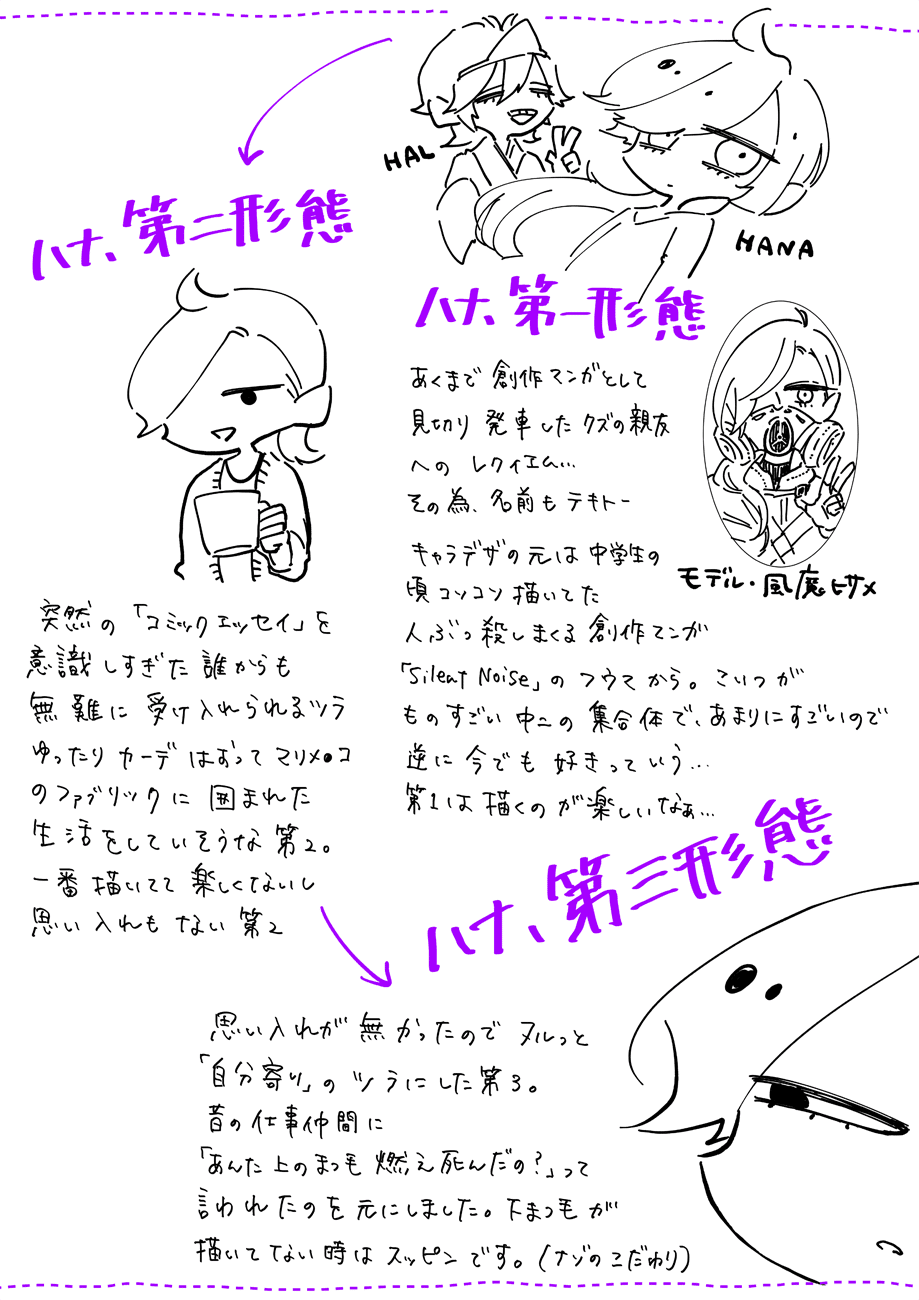 HAL
HANA
ハナ、第一形態
あくまで創作マンガとして
見切り発車したクズの親友
へのレクイエム…
その為、名前もテキトー
キャラデザの元は中学生の
頃コソコソ描いてた
人ぶっ殺しまくる創作マンガ
「Silent Noise」のフウマから。こいつが
ものすごい中二の集合体で、あまりにすごいので
逆に今でも好きっていう…
第1は描くのが楽しいなぁ…
モデル・風魔ヒサメ
ハナ、第二形態
突然の「コミックエッセイ」を
意識しすぎた誰からも
無難に受け入れられるヅラ
ゆったりカーデはおってマリメ●コ
のファブリックに囲まれた
生活をしていそうな第2。
一番描いてて楽しくないし
思い入れもない第2
ハナ、第三形態
思い入れが無かったのでヌルっと
「自分寄り」のヅラにした第3。
昔の仕事仲間に
「あんた上のまつ毛燃え死んだの?」って
言われたのを元にしました。下まつ毛が
描いてない時はスッピンです。(ナゾのこだわり)